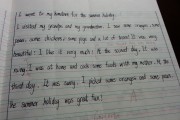 I went to my grandma for the summer holiday.
I visited my grandpa and my grandmother. I saw some oranges, some
pears, some chickens, some pigs and a lot of trees! It was very
beautiful! I like it very much! On the second day, it was
rainy. I was at home and cook some foods with my mother. On the
third day, it was sunny. I picked some oranges and some pears.
The summer holiday was great fun!